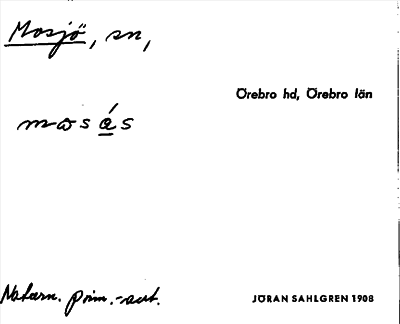 Mosjö, sn,
Örebro hd, Örebro län
mosás
Naturn. prim.-aut.
JÖRAN SAHLGREN 1908